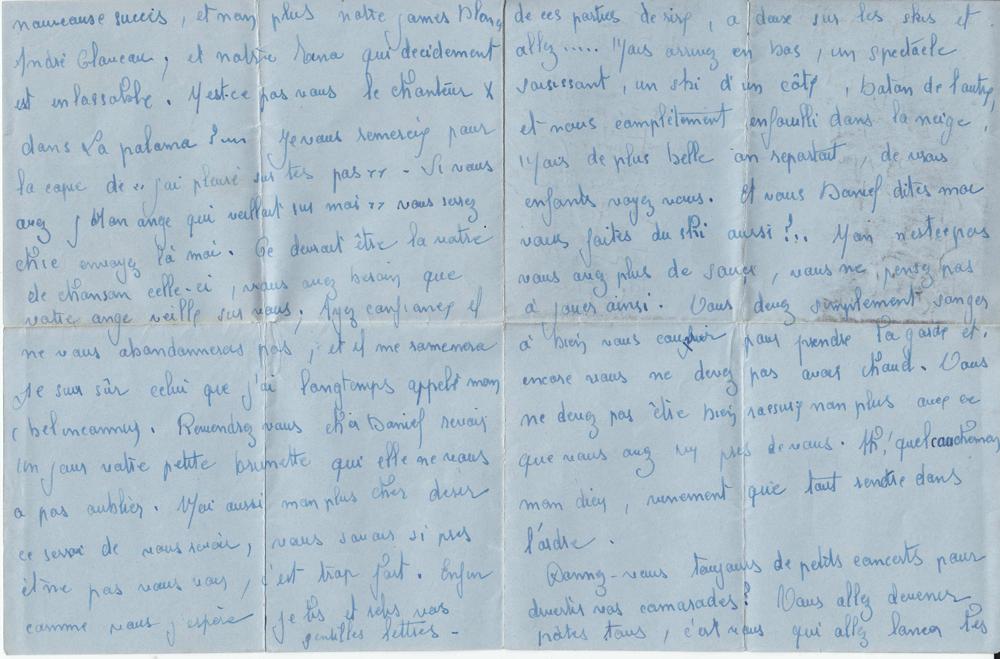 nouveause succis, et non plus notre james Blong
André Claveau, et notre Nana qui decidement
est enlassable. N'estce pas vous le chanteur X
dans La paloma ? un Je vous remercie pour
la copie de "j'ai pleuré sur tes pas" - Si vous
avez Mon ange qui veillait sur moi" vous serez
chic envoyez là moi. Ce devrait être la votre
de chanson celle-ci, vous avez besoin que
votre ange veille sur vous. Ayez confiance il
ne vous abandonneras pas, et il me ramenera
Je suis sûr celui que j'ai longtemps appelé mon
bel inconnus. Reviendrez vous cher Daniel revoir
un jour votre petite brunette qui elle ne vous
a pas oublier. Moi aussi mon plus cher desir
ce serai de vous revoir, vous savoir si près
et ne pas vous voir, c'est trop fort. Enfin
comme vous j'espère je lis et relis vos
gentilles lettres -
de ces parties de rire, a deux sur les skis et
allez..... Mais arrivez en bas, un spectacle
saisissant, un ski d'un côté, baton de l'autre,
et nous complètement enfouilli dans la neige.
Mais de plus belle on repartait, de vrais
enfants voyez vous. Et vous Daniel dites moi
vous faites du ski aussi ?.. Non n'estcepas
vous avez plus de soucis, vous ne pensez pas
à jouer ainsi. Vous devez simplement songer
à bien vous couvrir pour prendre la garde et
encore vous ne devez pas avoir chaud. Vous
ne devez pas être bien rassurez non plus avec ce
que vous avez vu près de vous. Ah! quel cauchemar
mon dieu, vivement que tout rentre dans
l'ordre.
Donnez-vous toujours de petits concerts pour
divertir vos camarades ? Vous allez devenir
poètes tous, c'est vous qui allez lancer les